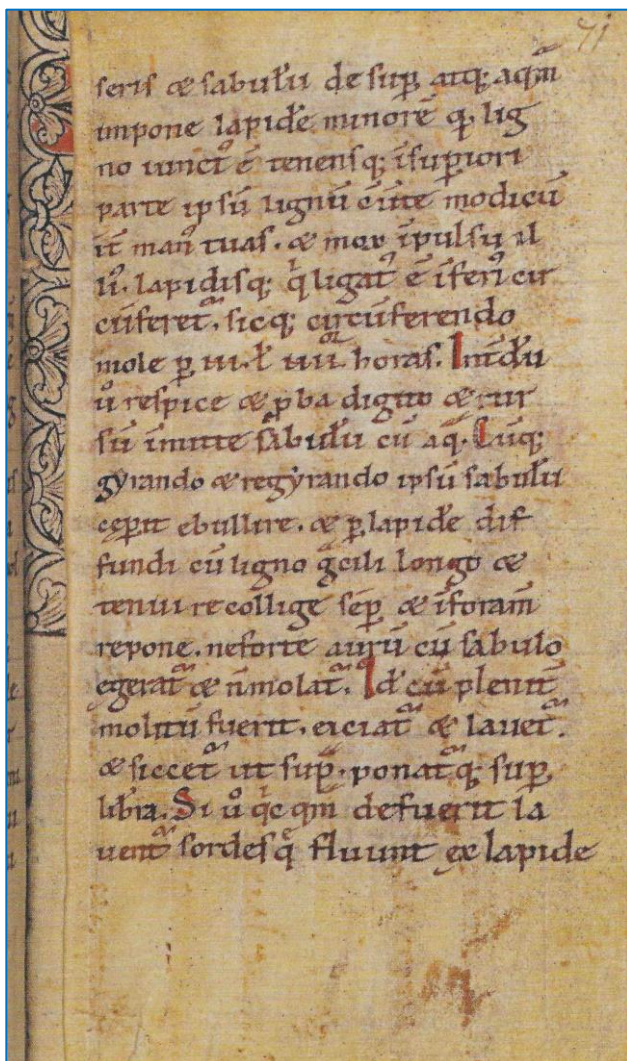 71
seris & sabulū de sup atq; aqm̄
impone lapidē minorē q̨ lig
no iunct᷒ ē tenensq; īsupiori
parte ipsū lignū ūte modicū
īt man᷒ tuas. & mox īpulsu il
li᷒. lapidisq; qⁱ ligat᷒ ē īferi᷒ cir
cūferet᷑. sicq; circūferendo
mole p̱ iii. ł iiii horas. Int̄dū
ů respice & ꝓba digito & rur
sū īmitte sabulū cū aq̄. Cūq;
gyrando & regyrando ipsū sabulū
cęperit ebullire. & p̱ lapidē dif
fundi cū ligno gͣcili longo &
tenui recollige sēp & ī foram̄
repone. ne forte aurū cū sabulo
egerat᷑ & n̄ molat᷑. Id cū plenit̄
molitū fuerit. eiciat᷑ & lavet᷑.
& siccet᷑ ut sup̄. ponat᷑q; sup̱
libra. Si ů qⁱc qm̄ defuerit la
vent᷑ sordes q̨ fluunt ex lapide